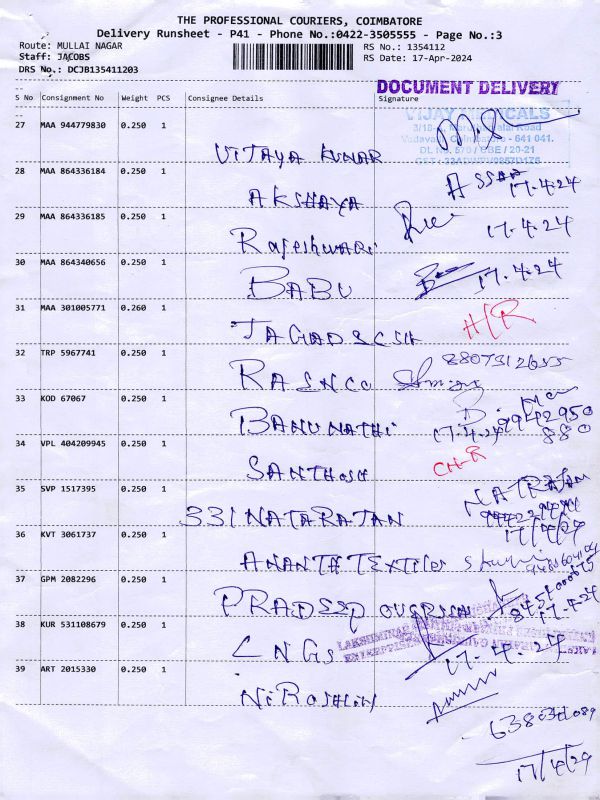 THE PROFESSIONAL COURIERS, COIMBATORE
Delivery Runsheet - P41 - Phone No.:0422-3505555 - Page No.:3
Route: MULLAI NAGAR
RS No.: 1354112
Staff: JACOBS
RS Date: 17-Apr-2024
DRS No.: DCJB135411203
DOCUMENT DELIVERY
S No Consignment No Weight PCS Consignee Details Signature
VIJAY
27 MAA 944779830 0.250 1
VIJAYA KUMAR
28 MAA 864336184 0.250 1
AKSHAYA 17.4.24
29 MAA 864336185 0.250 1
Rajeshwari 17.4.24
30 MAA 864340656 0.250 1
BABU 17.4.24
31 MAA 301005771 0.260 1
JAGADSCSH H/R
32 TRP 5967741 0.250 1
8807312655
RASNCO
33 KOD 67067 0.250 1
BANUNATHI 17.4.24 9942950
880
34 VPL 404209945 0.250 1
SANTHOSH CH-R
35 SVP 1517395 0.250 1
NATRAJAN
331 NATARAJAN
17/4/24
36 KVT 3061737 0.250 1
ANANTH TEXTILES
37 GPM 2082296 0.250 1
PRADEEP 17.4.24
38 KUR 531108679 0.250 1
LNGS 17.4.24
39 ART 2015330 0.250 1
NIROSHINI
17/4/24